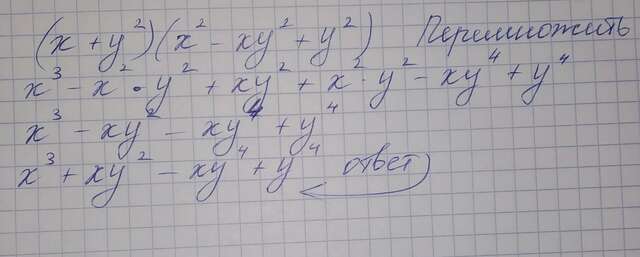 (x + y²)(x² - xy² + y²) Перемножить
x³ - x² · y² + xy² + x² · y² - xy⁴ + y⁴
x³ - xy² - xy⁴ + y⁴
x³ + xy² - xy⁴ + y⁴ ответ